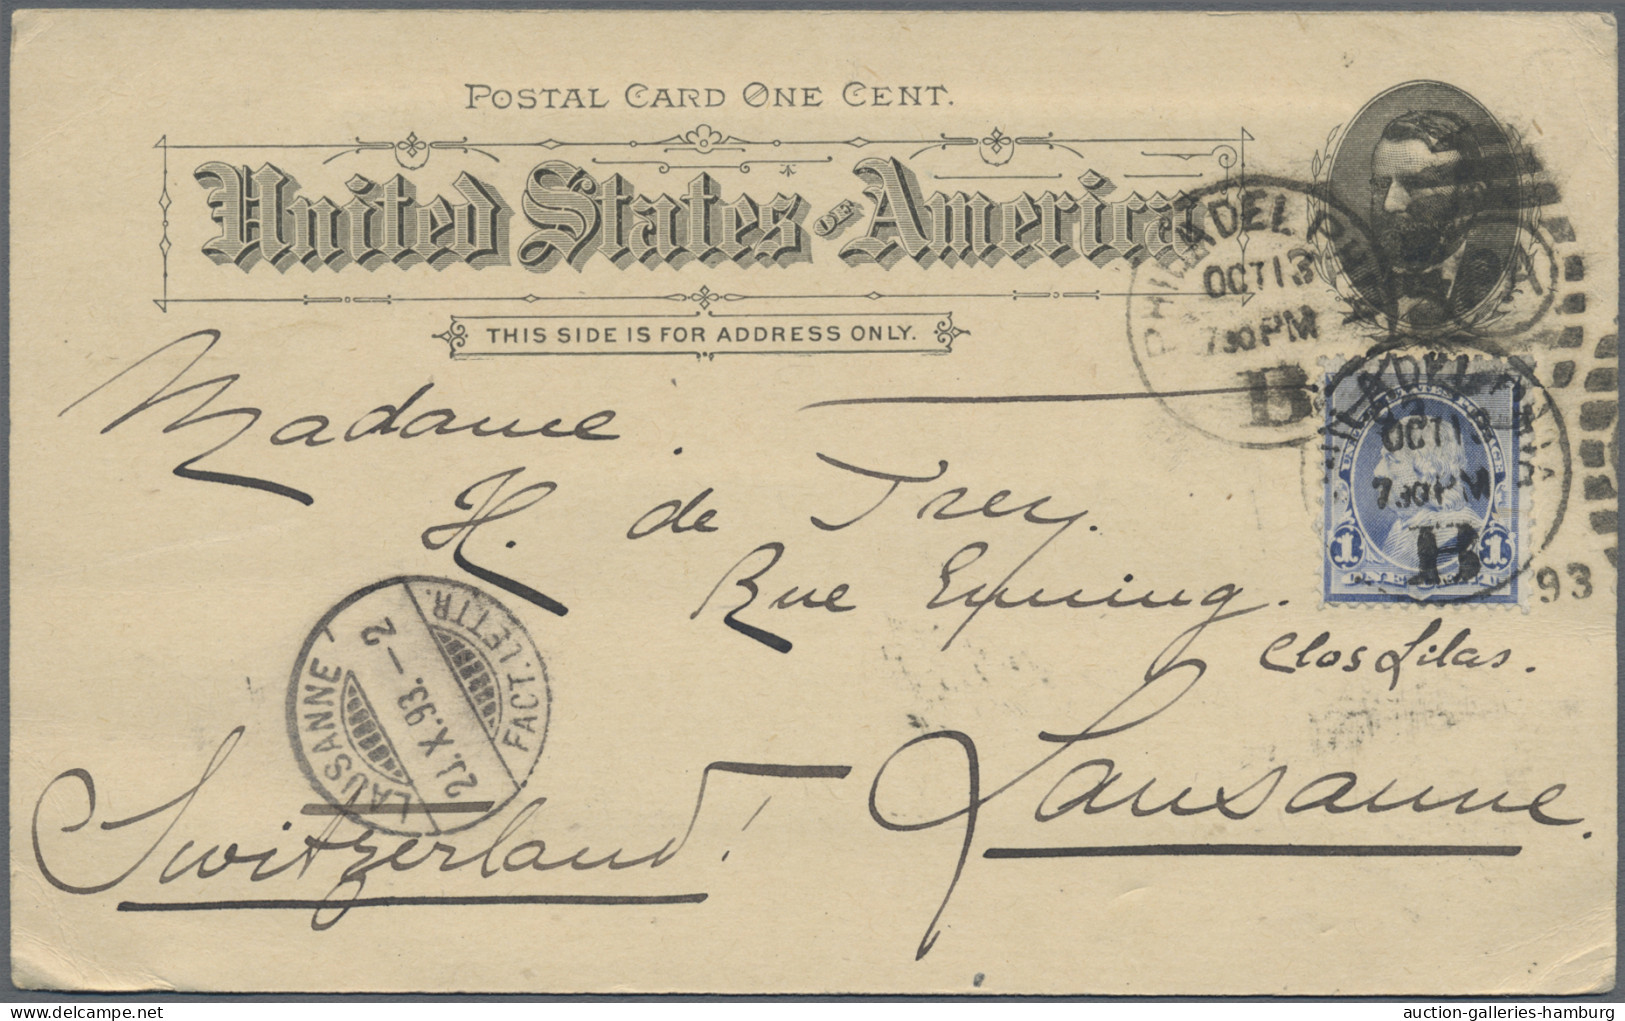 POSTAL CARD ONE CENT.
United States OF America
THIS SIDE IS FOR ADDRESS ONLY.
PHILADELPHIA
OCT 13
730 PM
B
PHILADELPHIA
OCT 13
730 PM
B
93
1 1
Madame
H. de Trey.
Rue
Clos Lilas.
Lausanne.
Switzerland!
LAUSANNE
21.X.93.-2
FACT. LETTR.
auction-galleries-hamburg